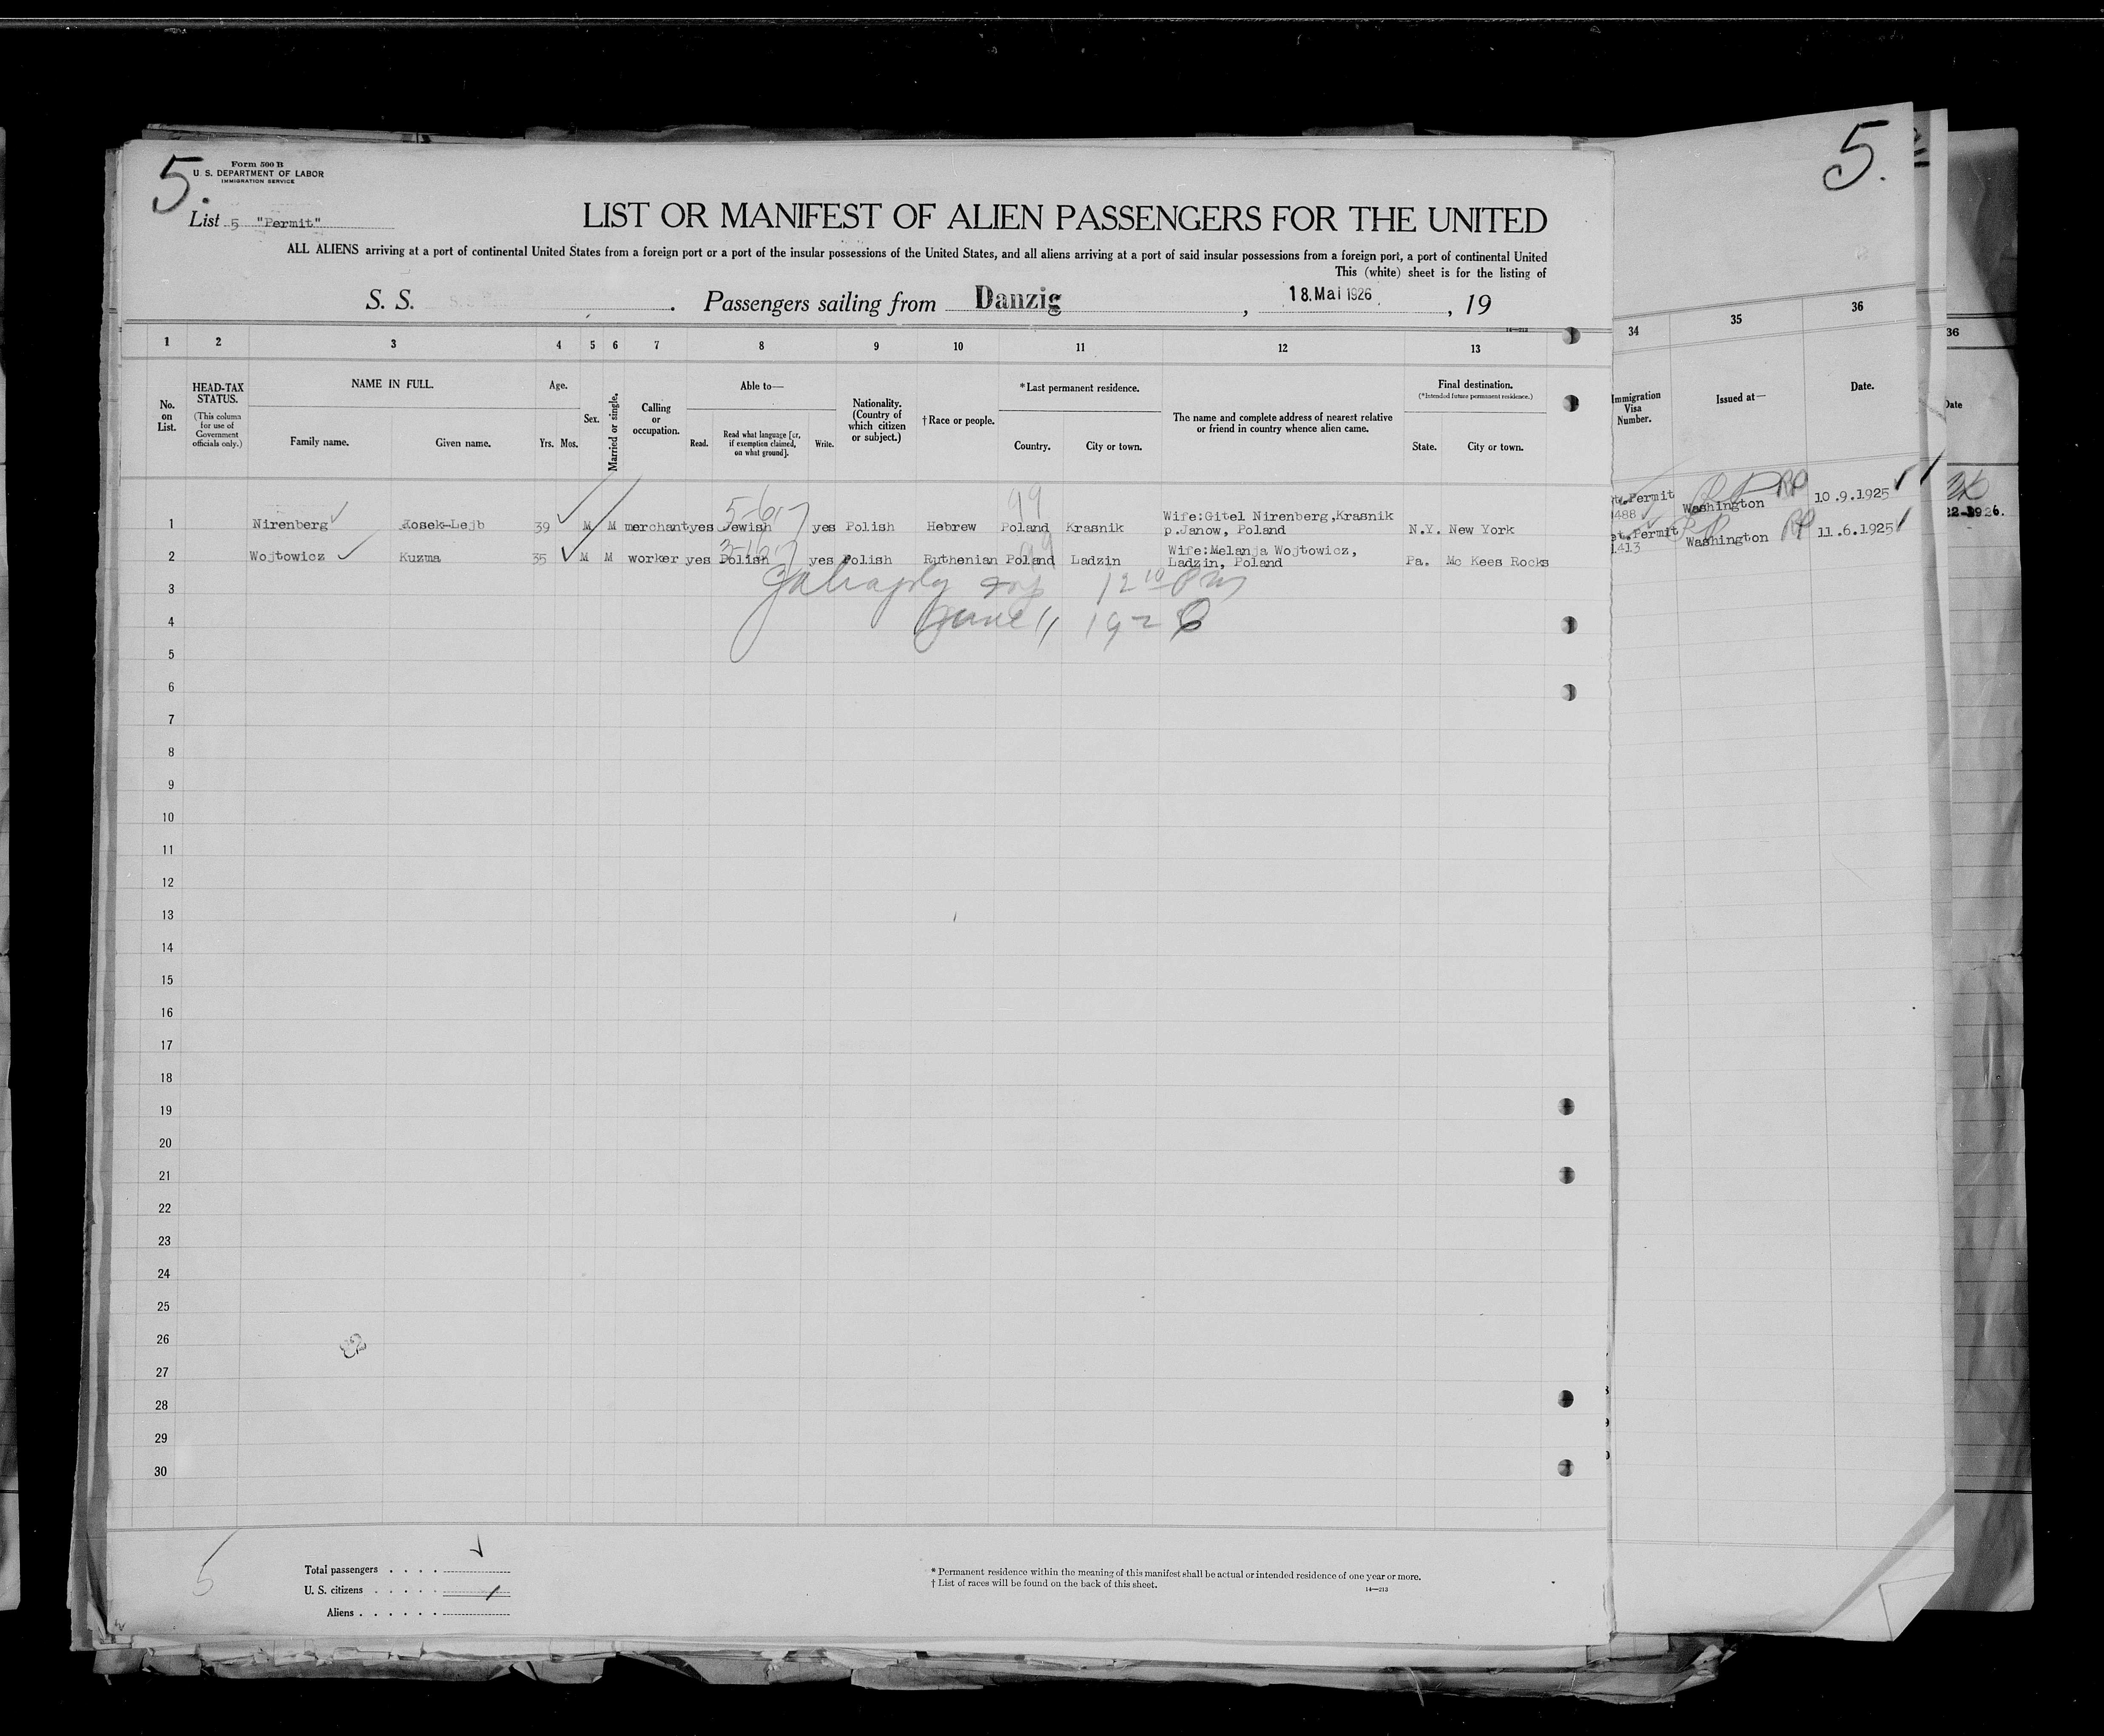 5.
Form 500 B
U. S. DEPARTMENT OF LABOR
IMMIGRATION SERVICE
List 5 "Permit"
LIST OR MANIFEST OF ALIEN PASSENGERS FOR THE UNITED
ALL ALIENS arriving at a port of continental United States from a foreign port or a port of the insular possessions of the United States, and all aliens arriving at a port of said insular possessions from a foreign port, a port of continental United
This (white) sheet is for the listing of
S. S. . Passengers sailing from Danzig , 18. Mai 1926 , 19
14—213
1 2 3 4 5 6 7 8 9 10 11 12 13
No. on List.
HEAD-TAX STATUS.
(This column for use of Government officials only.)
NAME IN FULL.
Family name. Given name.
Age.
Yrs. Mos.
Sex.
Married or single.
Calling or occupation.
Able to—
Read. Read what language [or, if exemption claimed, on what ground]. Write.
Nationality. (Country of which citizen or subject.)
† Race or people.
* Last permanent residence.
Country. City or town.
The name and complete address of nearest relative or friend in country whence alien came.
Final destination.
(* Intended future permanent residence.)
State. City or town.
1 Nirenberg Kosek-Lejb 39 M M merchant yes Jewish yes Polish Hebrew Poland Krasnik Wife:Gitel Nirenberg,Krasnik p.Janow, Poland N.Y. New York
2 Wojtowicz Kuzma 35 M M worker yes Polish yes Polish Ruthenian Poland Ladzin Wife:Melanja Wojtowicz, Ladzin, Poland Pa. Mc Kees Rocks
12 10 PM
June 11 1926
3
4
5
6
7
8
9
10
11
12
13
14
15
16
17
18
19
20
21
22
23
24
25
26
27
28
29
30
5
Total passengers . . . .
U. S. citizens . . . . .
Aliens . . . . . .
* Permanent residence within the meaning of this manifest shall be actual or intended residence of one year or more.
† List of races will be found on the back of this sheet.
14—213
5.
34 35 36
Immigration Visa Number.
Issued at—
Date.
Permit
488 Washington RP 10.9.1925
Permit
1413 Washington RP 11.6.1925
36
Date